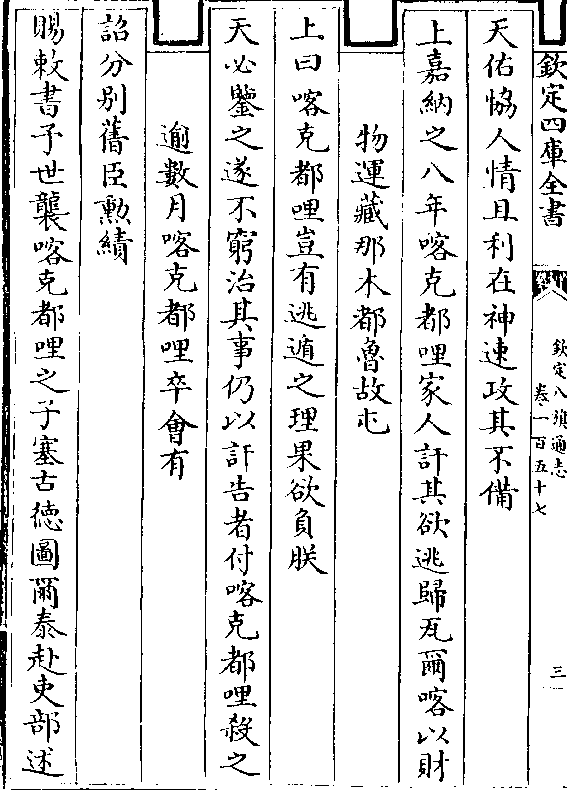 欽定四庫全書
欽定八旗通志
卷一百五十七
三
天佑恊人情且利在神速攻其不備
上嘉納之八年喀克都哩家人訐其欲逃歸瓦爾喀以財
物運藏那木都魯故屯
上曰喀克都哩豈有逃遁之理果欲負朕
天必鑒之遂不窮治其事仍以訐告者付喀克都哩殺之
逾數月喀克都哩卒會有
詔分别舊臣勲績
賜敕書予世襲喀克都哩之子塞古德圖爾泰赴吏部述